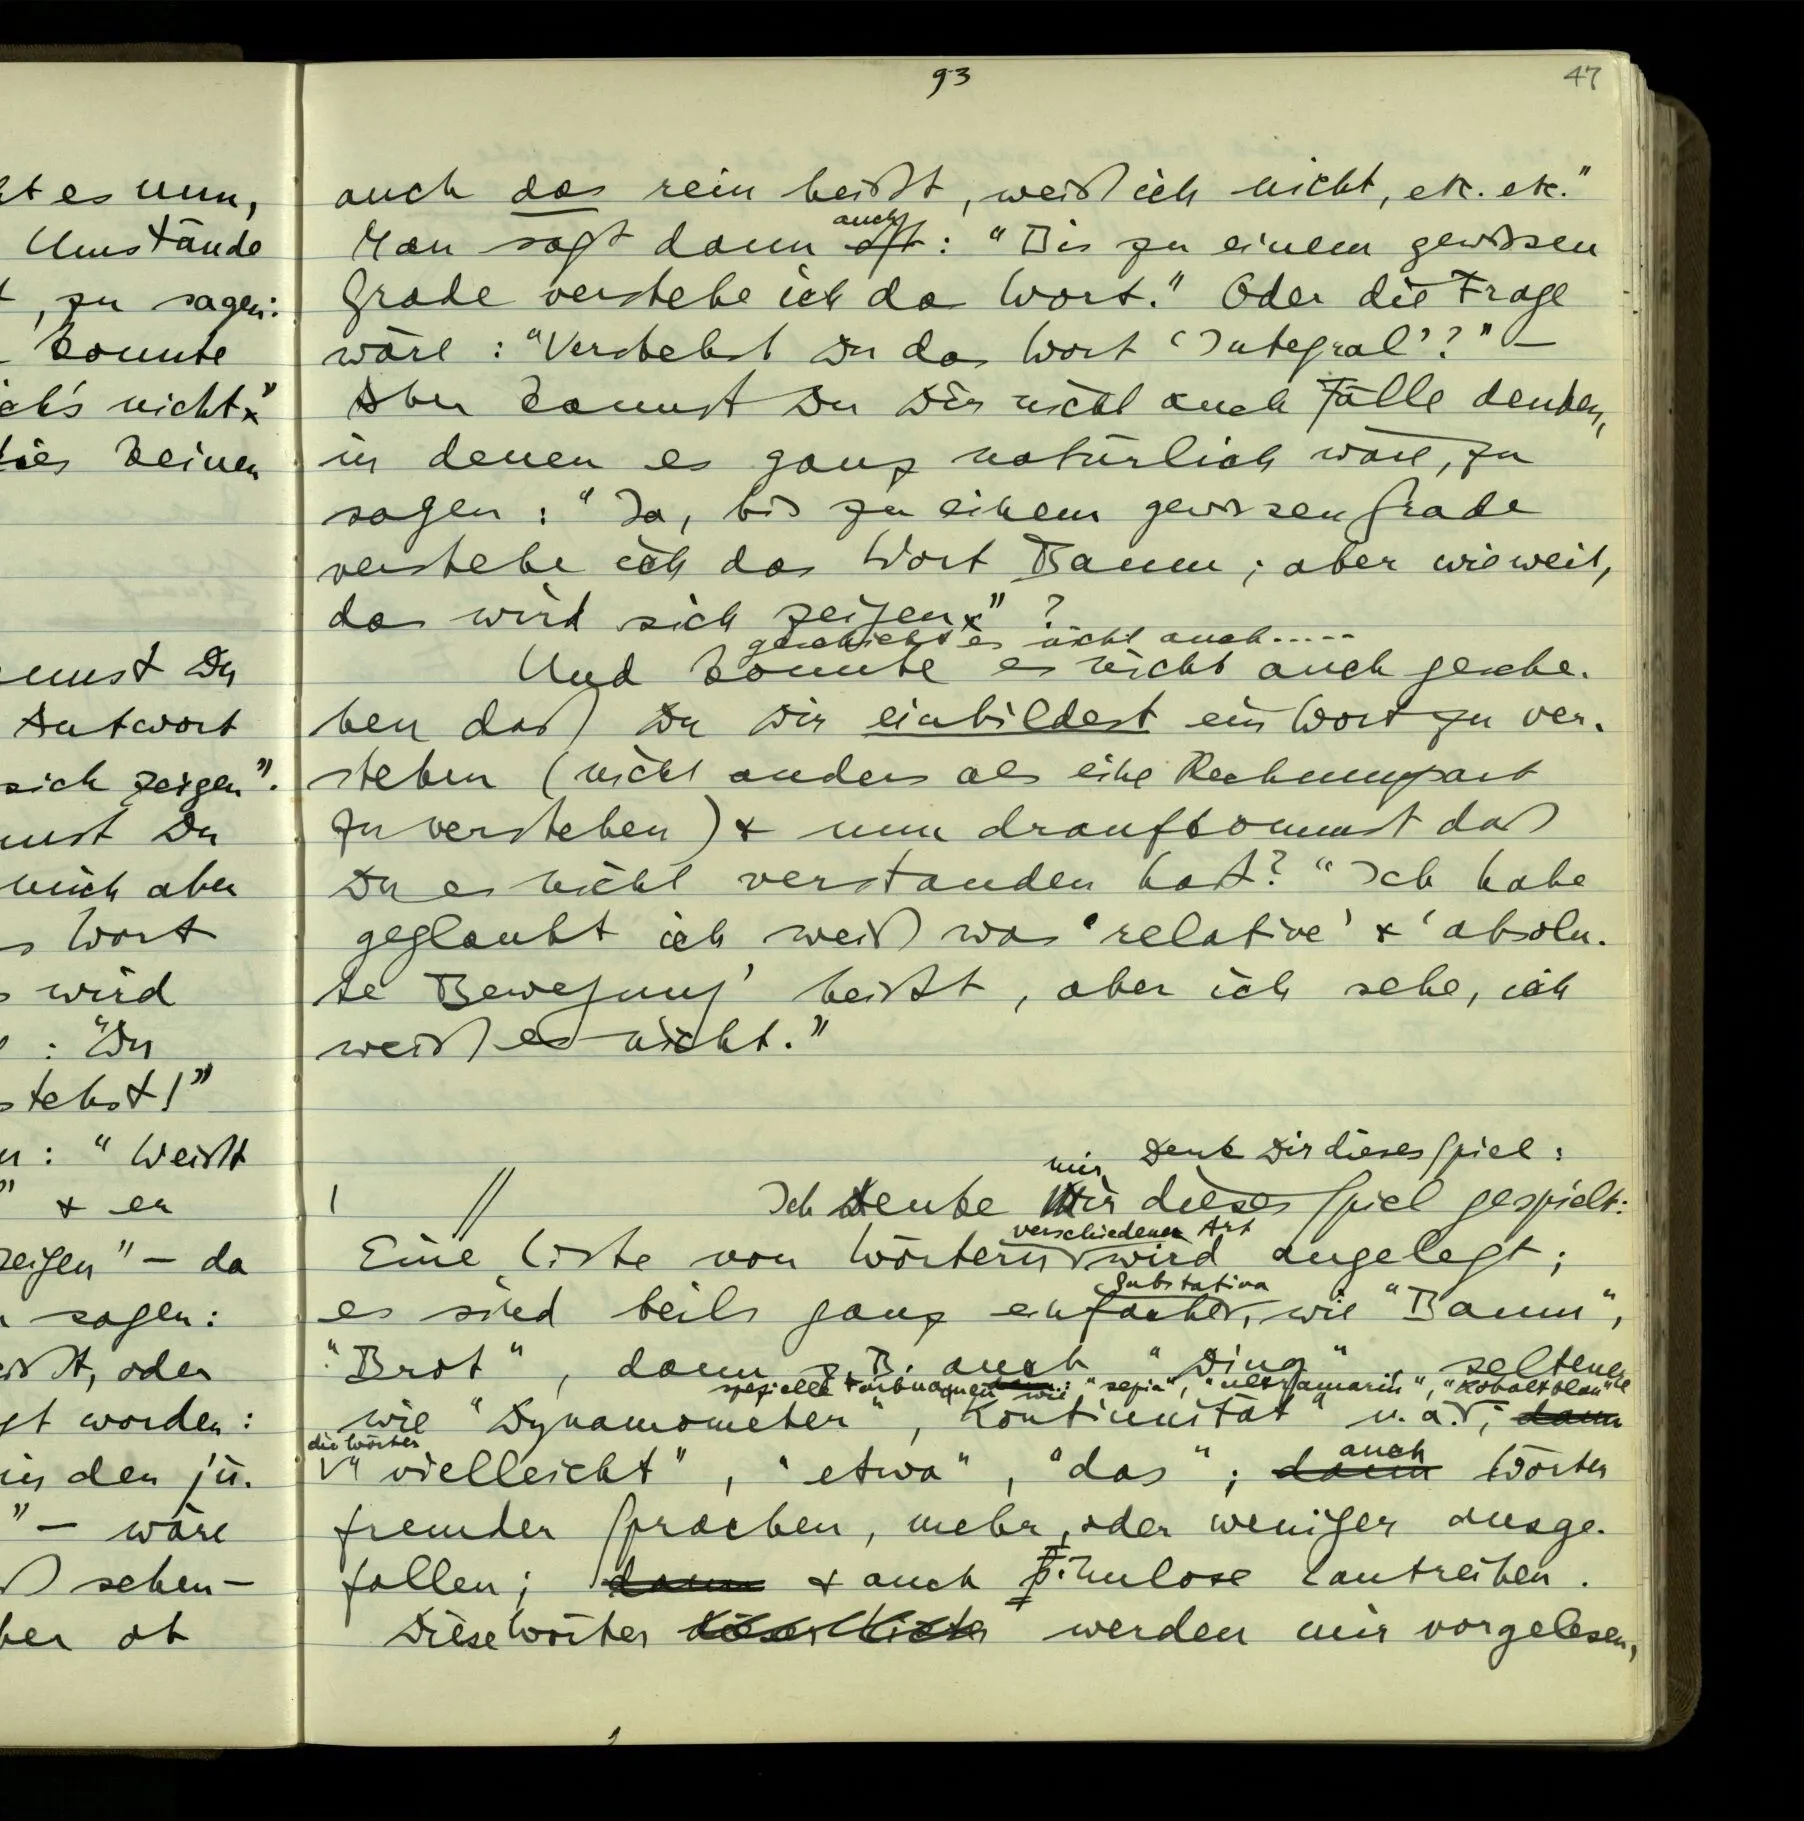 93
47
ht es nun,
Umstände
, zu sagen:
konnte
ich's nicht"
dies keinen
nnst Du
Antwort
sich zeigen".
nnst Du
mich aber
s Wort
s wird
: "Du
stehst!"
n: "Weißt
" & er
zeigen" – da
n sagen:
ißt, oder
gt worden:
in den jü-
" – wäre
ß sehen –
ber ob
auch das rein heißt, weiß ich nicht, etc. etc."
auch
Man sagt dann oft: "Bis zu einem gewissen
Grade verstehe ich das Wort." Oder die Frage
wäre: "Verstehst Du das Wort 'Integral'?" –
Aber kannst Du Dir nicht auch Fälle denken,
in denen es ganz natürlich wäre, zu
sagen: "Ja, bis zu einem gewissen Grade
verstehe ich das Wort Baum; aber wieweit,
das wird sich zeigen" ?
geschieht es nicht auch.....
Und könnte es nicht auch gesche-
hen daß Du Dir einbildest ein Wort zu ver-
stehen (nicht anders als eine Rechnungsart
zu verstehen) & nun draufkommst daß
Du es nicht verstanden hast? "Ich habe
geglaubt ich weiß was 'relative' & 'absolu-
te Bewegung' heißt, aber ich sehe, ich
weiß es nicht."
Denk Dir dieses Spiel:
mir
| // Ich denke mir dieses Spiel gespielt:
verschiedener Art
Eine Liste von Wörtern wird angelegt;
Substativa
es sind teils ganz einfache, wie "Baum",
"Brot", dann z.B. auch "Ding", seltenere
spezielle Farbnamen wie: "sepia", "ultramarin", "Kobaltblau"
wie "Dynamometer", Kontinuität" u.a.; dann
die Wörter
"vielleicht", "etwa", "das"; dann auch Wörter
fremder Sprachen, mehr, oder weniger ausge-
fallen; dann & auch sinnlose Lautreihen.
Diese Wörter dieser Liste werden mir vorgelesen,